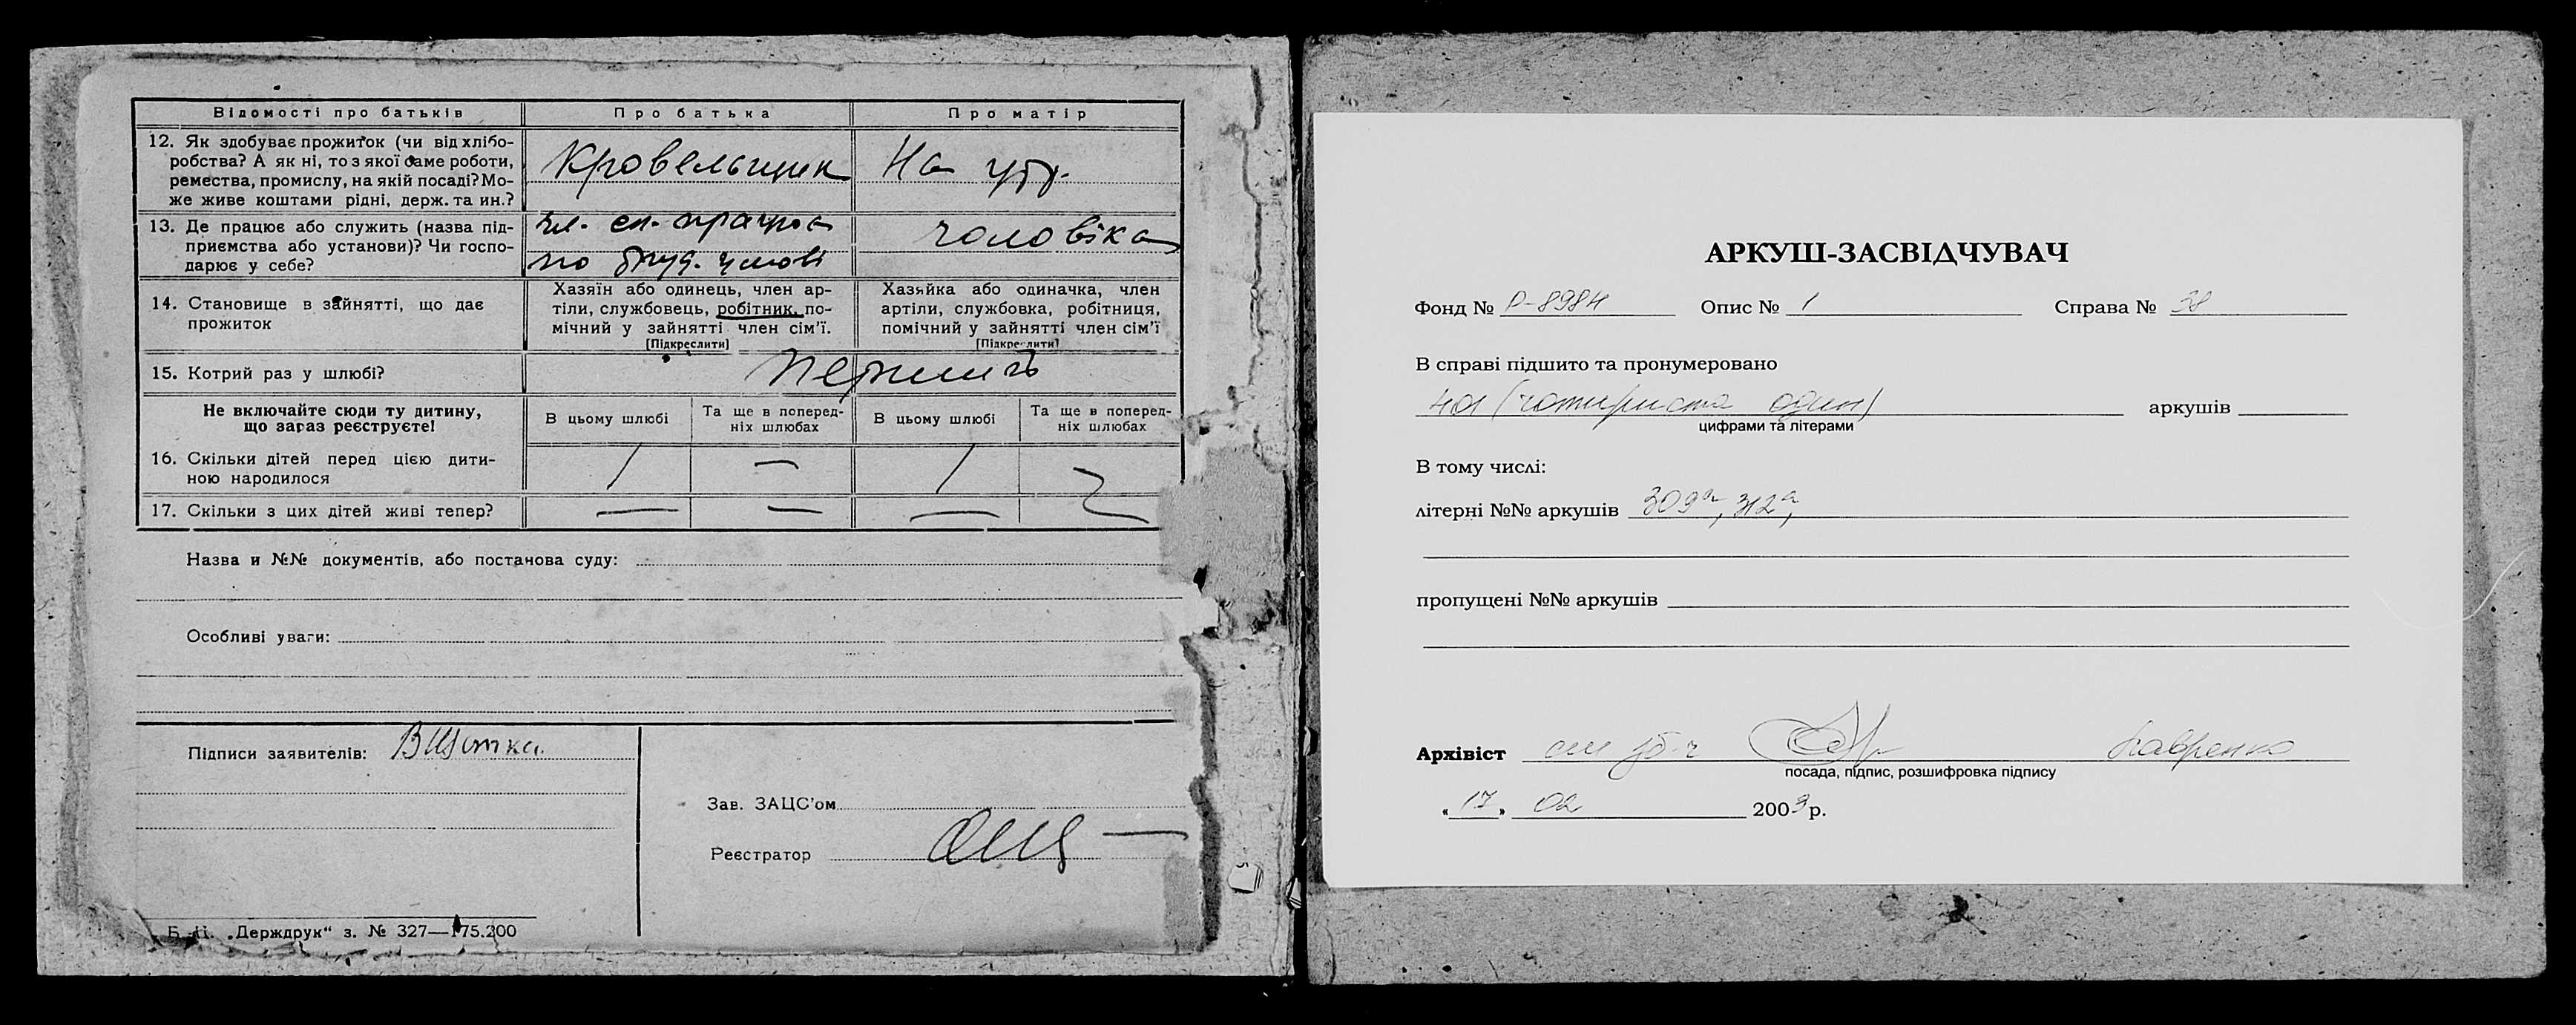 Відомості про батьків Про батька Про матір
12. Як здобуває прожиток (чи від хлібо-
робства? А як ні, то з якої саме роботи,
ремества, промислу, на якій посаді? Мо-
же живе коштами рідні, держ. та ин.?
Кровельщик На утр.
13. Де працює або служить (назва під-
приємства або установи)? Чи госпо-
дарює у себе?
чл. сп.
по буд. чоловіка
14. Становище в зайнятті, що дає
прожиток
Хазяїн або одинець, член ар-
тіли, службовець, робітник, по-
мічний у зайнятті член сім'ї.
[Підкреслити]
Хазяйка або одиначка, член
артіли, службовка, робітниця,
помічний у зайнятті член сім'ї
[Підкреслити]
15. Котрий раз у шлюбі?
Не включайте сюди ту дитину,
що зараз реєструєте!
В цьому шлюбі
Та ще в поперед-
ніх шлюбах
В цьому шлюбі
Та ще в поперед-
ніх шлюбах
16. Скільки дітей перед цією дити-
ною народилося
1 — 1
17. Скільки з цих дітей живі тепер?
— — —
Назва и №№ документів, або постанова суду:
Особливі уваги:
Підписи заявителів:
Зав. ЗАЦС'ом
Реєстратор
"Держдрук" з. № 327—175.200
АРКУШ-ЗАСВІДЧУВАЧ
Фонд № Р-8984 Опис № 1 Справа № 38
В справі підшито та пронумеровано
401 (чотириста один) аркушів
цифрами та літерами
В тому числі:
літерні №№ аркушів 309а, 312а,
пропущені №№ аркушів
Архівіст Лавренко
посада, підпис, розшифровка підпису
«17» 02 2009 р.